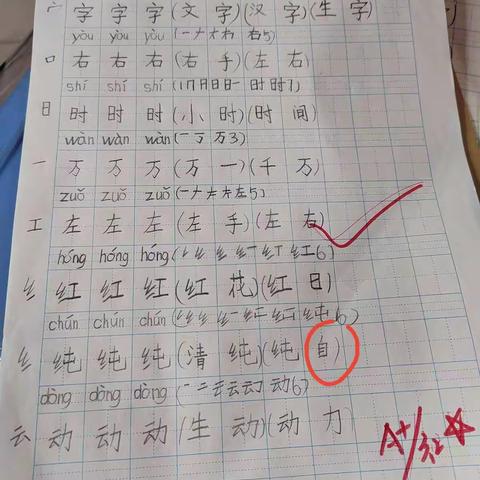 宀 字 字 字 (文 字)(汉 字)(生 字)
yòu yòu yòu (一ナ大右 右5)
口 右 右 右 (右 手)(左 右)
shí shí shí (丨冂日日 时时7)
日 时 时 时 (小 时)(时 间)
wàn wàn wàn (一丆万3)
一 万 万 万 (万 一)(千 万)
zuǒ zuǒ zuǒ (一ナ左5)
工 左 左 左 (左 手)(左 右)
hóng hóng hóng (纟红6)
纟 红 红 红 (红 花)(红 日)
chún chún chún
纟 纯 纯 纯 (清 纯)(纯 自)
dòng dòng dòng (一二云云动 动6)
云 动 动 动 (生 动)(动 力)
A+/红☆